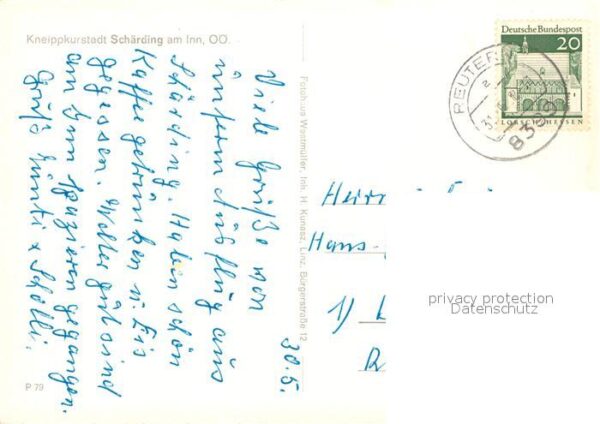 Kneippkurstadt Schärding am Inn, OÖ.
30.5.
Viele Grüße von
unserm Ausflug aus
Schärding. Haben schon
Kaffee getrunken u. Eis
gegessen. Wetter gut sind
am Inn spazieren gegangen.
Grüße
P 79
Fotohaus Westmüller, Inh. H. Kunasz, Linz, Bürgerstraße 12
Deutsche Bundespost
20
LORSCH/HESSEN
REUTER
8399
Herrn
Hans-
1)
privacy protection
Datenschutz